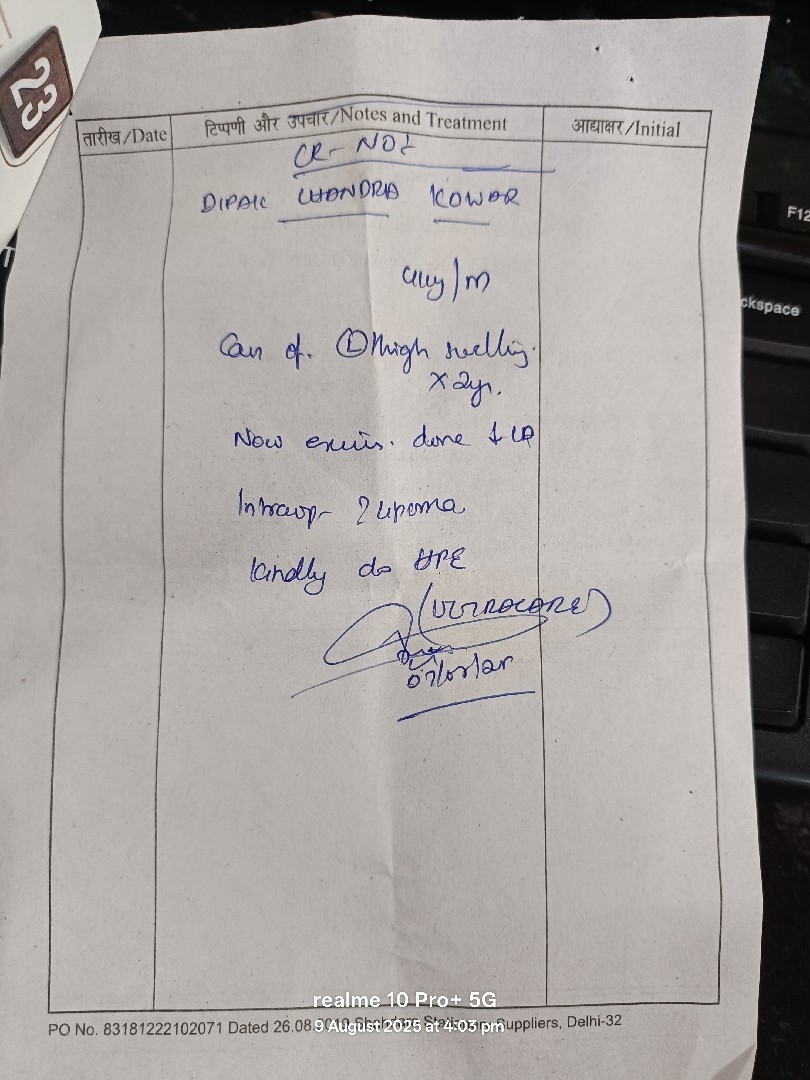 23
तारीख/Date टिप्पणी और उपचार/Notes and Treatment आद्याक्षर/Initial
CR- NO:-
DIPAK CHANDRA KOWAR
/m
Case of. Ⓛ Thigh swelling.
x 2yr.
Now excis. done LA
Intraop- ? lipoma
Kindly do HPE
F12
ckspace
PO No. 83181222102071 Dated 26.08 Suppliers, Delhi-32
realme 10 Pro+ 5G
9 August 2025 at 4:03 pm